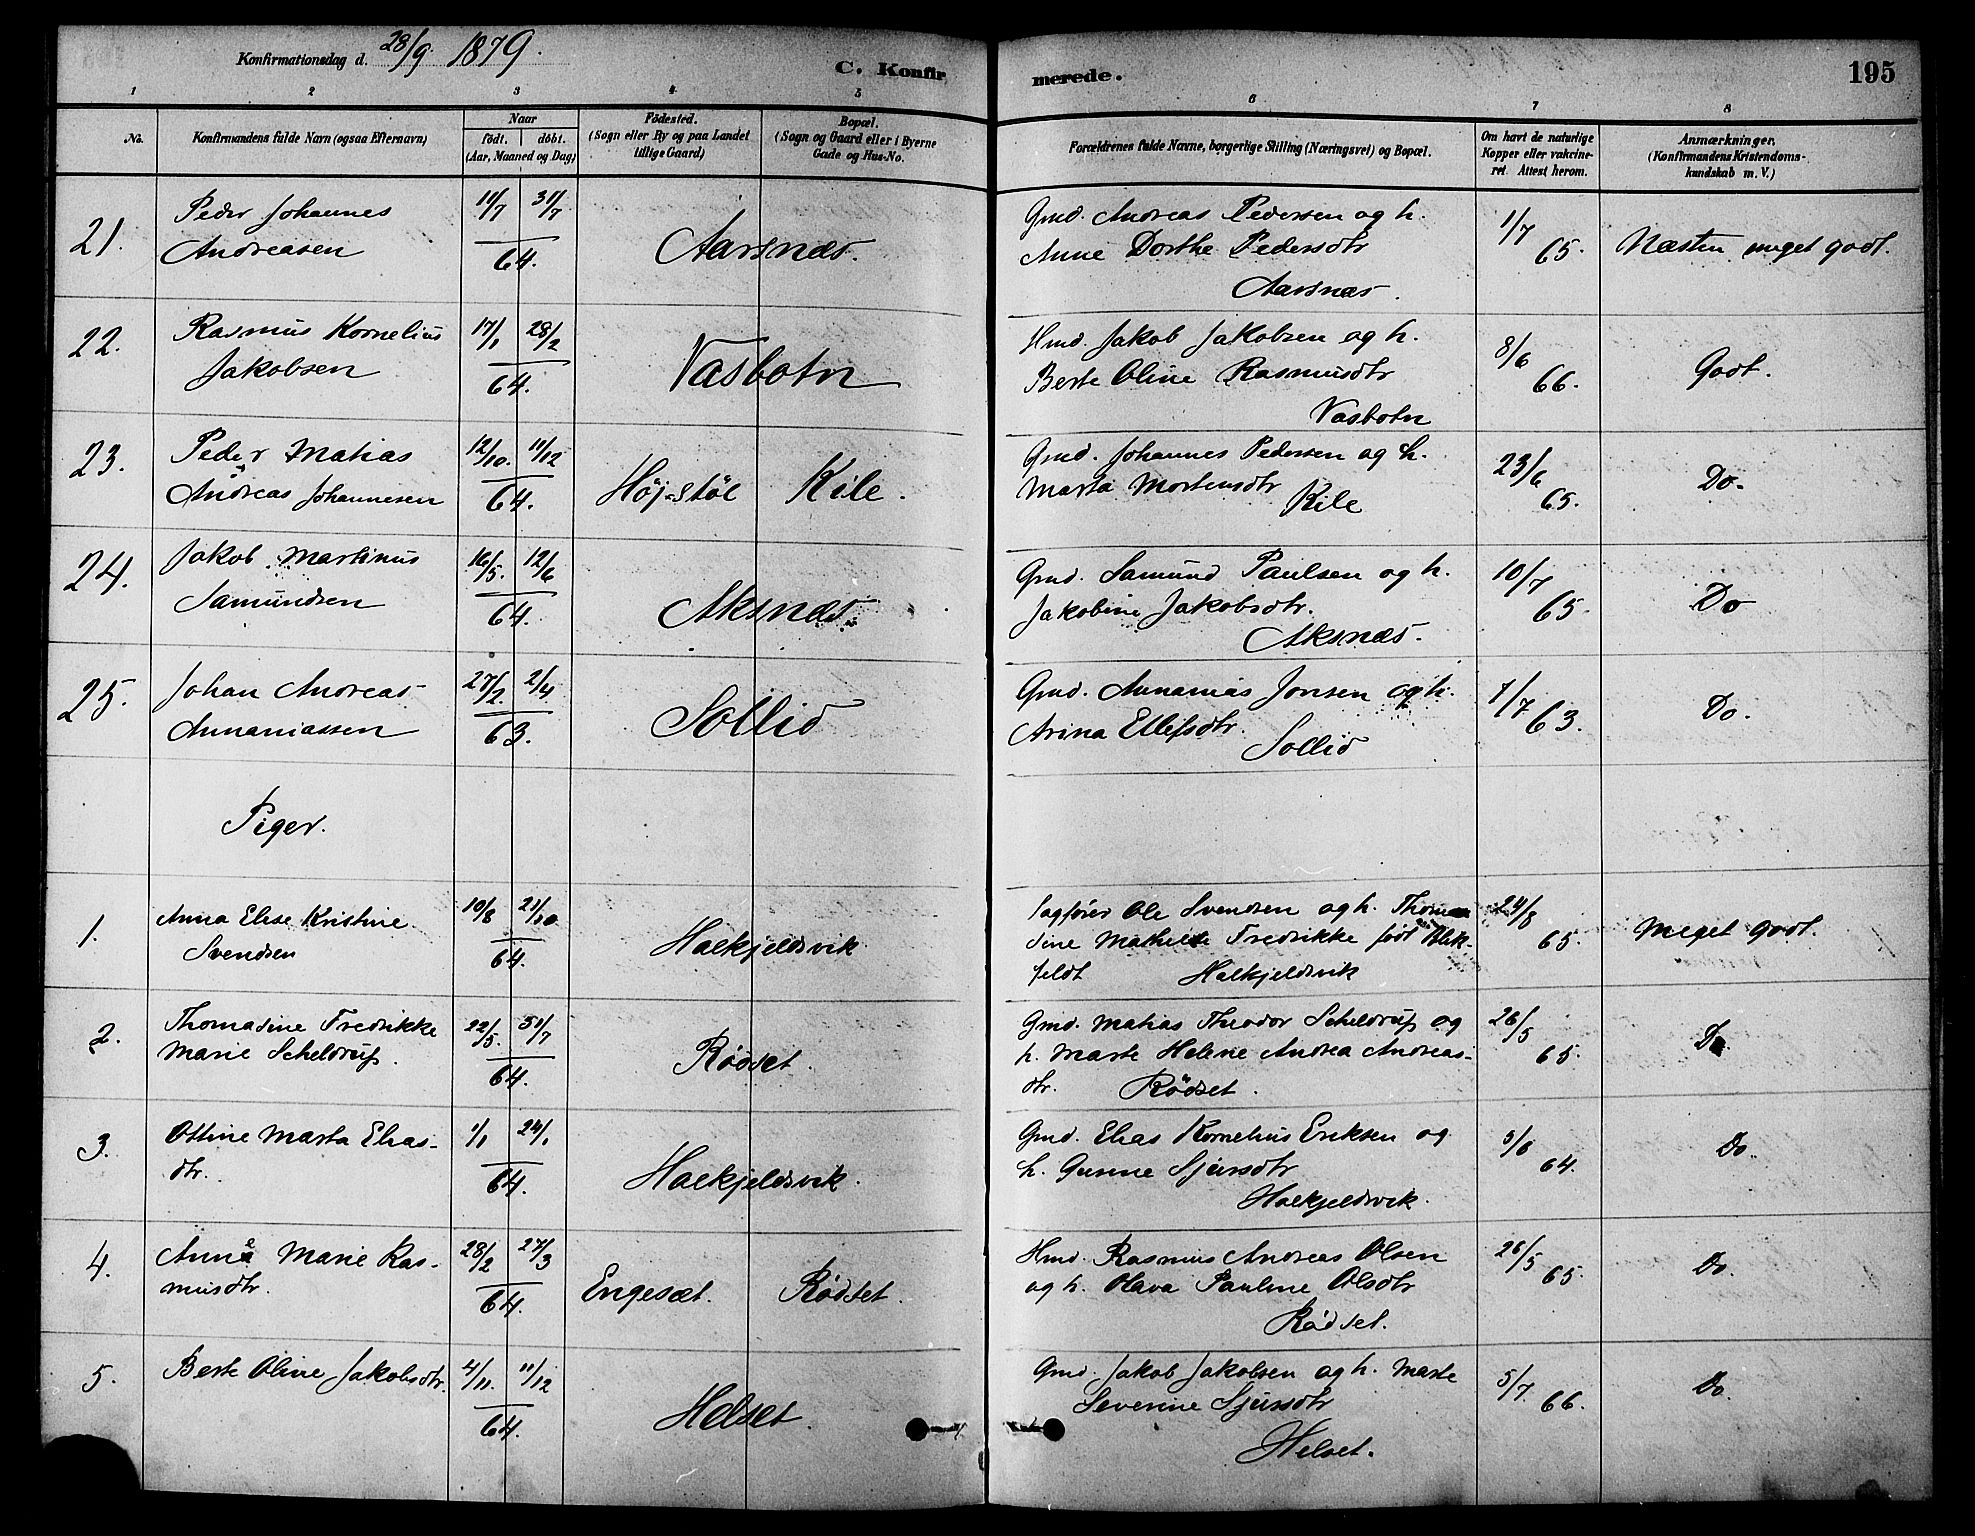 Konfirmationsdag d. 28/9. 1879.
C. Konfirmerede.
195
1 2 3 4 5 6 7 8
No.
Konfirmandens fulde Navn (ogsaa Efternavn)
Naar
født. døbt.
(Aar, Maaned og Dag)
Fødested.
(Sogn eller By og paa Landet
tillige Gaard)
Bopæl.
(Sogn og Gaard eller i Byerne
Gade og Hus-No.
Forældrenes fulde Navne, borgerlige Stilling (Næringsvei) og Bopæl.
Om havt de naturlige
Kopper eller vakcine-
ret. Attest herom.
Anmærkninger.
(Konfirmandens Kristendoms-
kundskab m. V.)
21. Peder Johannes 11/7 31/7 Gmd. Andreas Pedersen og h. 1/7
Andreasen 64. Aarsnæs. Anne Dorthe Pedersdtr 65. Næsten meget godt.
Aarsnæs.
22. Rasmus Kornelius 17/1 28/2 Hmd. Jakob Jakobsen og h. 8/6
Jakobsen 64. Vasbotn Berte Oline Rasmusdtr 66. Godt.
Vasbotn
23. Peder Matias 12/10. 11/12 Gmd. Johannes Pedersen og h. 23/6
Andreas Johannesen 64. Høj-støl Kile. Marta Mortensdtr Kile 65. Do.
24. Jakob Martinus 16/5. 12/6 Gmd. Samund Paulsen og h. 10/7
Samundsen 64. Aksnæs Jakobine Jakobsdtr. 65. Do
Aksnæs.
25. Johan Andreas 27/2. 2/4. Gmd. Annanias Jonsen og h. 1/7
Annaniassen 63. Sollid Arina Ellefsdtr. Sollid 63. Do.
Piger.
1. Anna Elise Kristine 10/8 21/10 Sagfører Ole Svendsen og h. Thoma 24/8
Svendsen 64. Halkjeldsvik sine Mathilde Fredrikke født Blik- 65. Meget godt.
feldt Halkjeldsvik
2. Thomasine Fredrikke 22/5. 31/7 Gmd. Matias Theodor Scheldrup og 26/5
Marie Scheldrup. 64. Rødset. h. Marte Helene Andrea Andreas- 65. Do.
dtr. Rødset.
3. Ottine Marta Elias- 1/1 24/1 Gmd. Elias Kornelius Eriksen og 5/6
dtr. 64. Halkjeldsvik. h. Gunne Sjursdtr 64. Do.
Halkjeldsvik.
4. Anna Marie Ras- 28/2 27/3 Hmd. Rasmus Andreas Olsen 26/5
musdtr. 64. Engesæt. Rødset. og h. Olava Pauline Olsdtr 65. Do.
Rødset.
5. Berte Oline Jakobsdtr. 4/11. 11/12 Gmd. Jakob Jakobsen og h. Marte 5/7
64. Helset. Severine Sjursdtr 66. Do.
Helset.